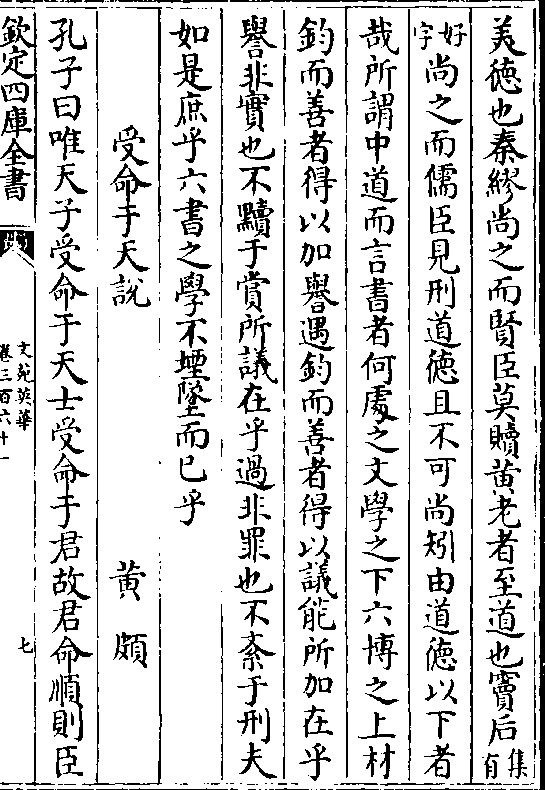 美德也秦繆尚之而賢臣莫贖黄老者至道也竇后集有
好字尚之而儒臣見刑道德且不可尚矧由道德以下者
哉所謂中道而言書者何處之文學之下六博之上材
鈞而善者得以加譽遇鈞而善者得以議能所加在乎
譽非實也不黷于賞所議在乎過非罪也不紊于刑夫
如是庶乎六書之學不堙墜而已乎
受命于天說 黄頗
孔子曰唯天子受命于天士受命于君故君命順則臣
欽定四庫全書
文苑英華
卷三百六十一
七